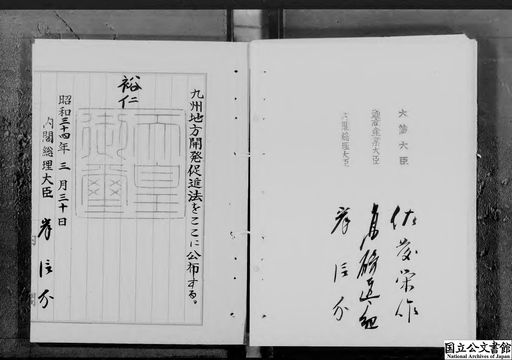 九州地方開発促進法をここに公布する。
裕仁
天皇御璽
昭和三十四年三月三十日
内閣総理大臣 岸信介
大蔵大臣 佐藤栄作
通商産業大臣 高碕達之助
内閣総理大臣 岸信介
国立公文書館
National Archives of Japan